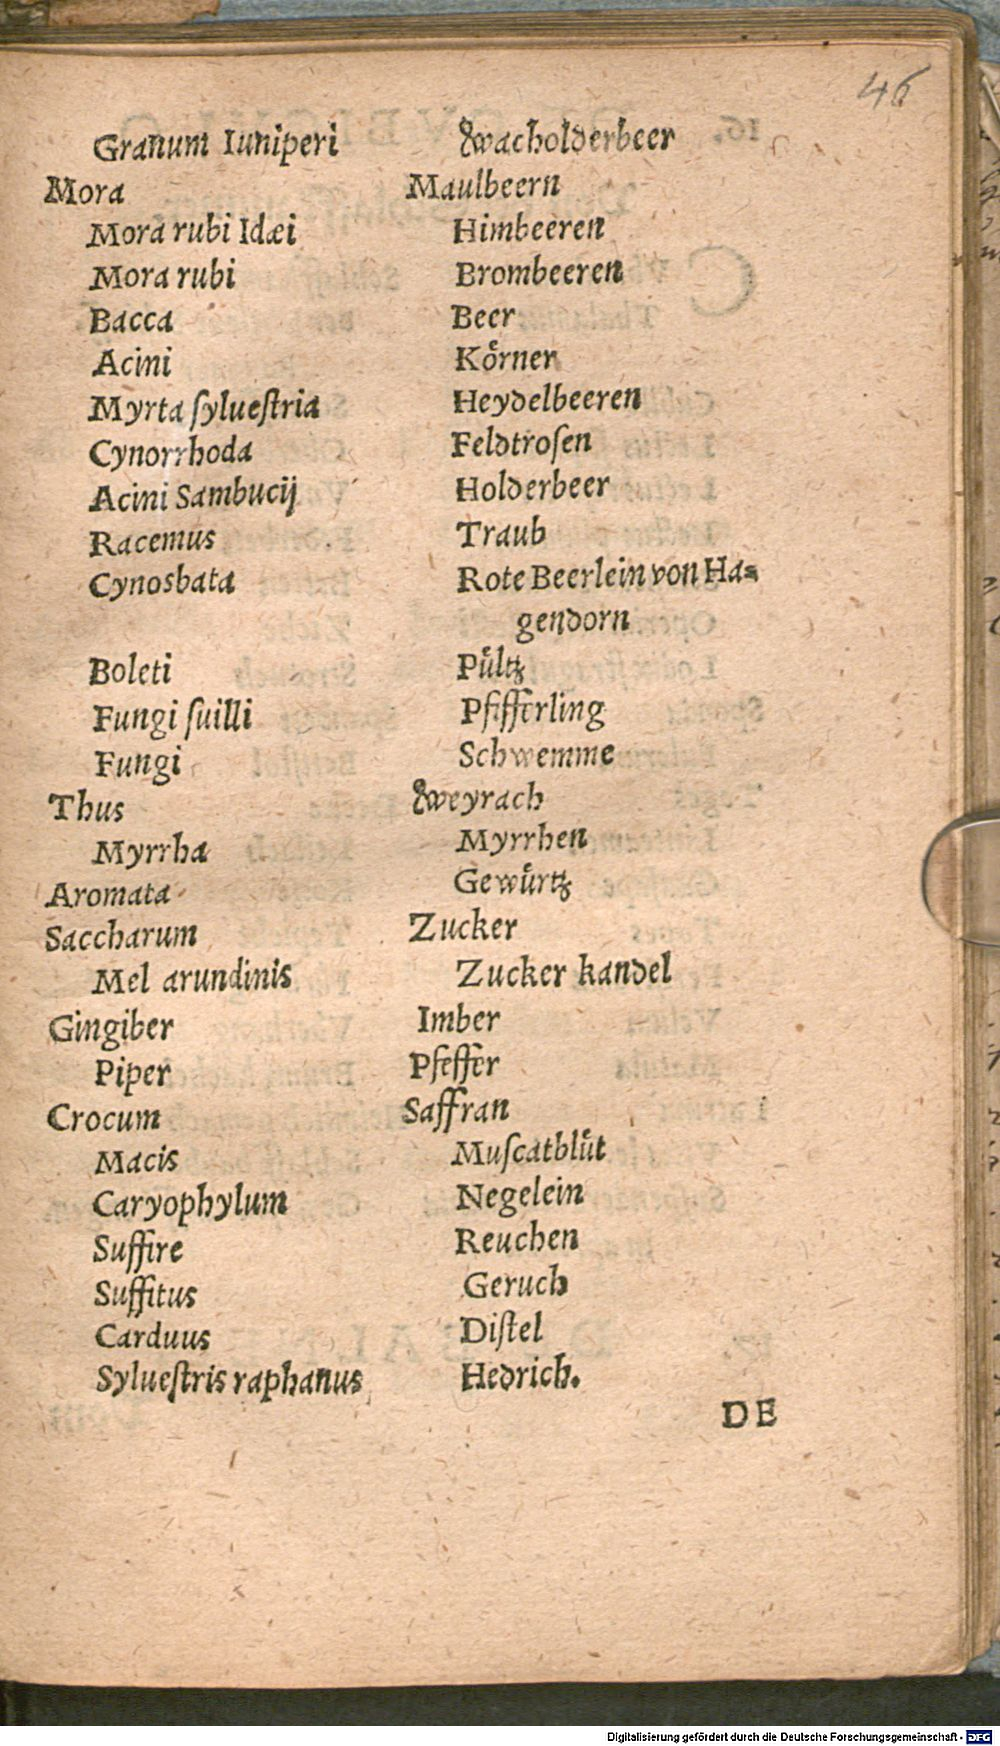 46
Granum Iuniperi Wacholderbeer
Mora Maulbeern
Mora rubi Idæi Himbeeren
Mora rubi Brombeeren
Bacca Beer
Acini Koͤrner
Myrta ſylueſtria Heydelbeeren
Cynorrhoda Feldtroſen
Acini Sambucij Holderbeer
Racemus Traub
Cynosbata Rote Beerlein von Ha⸗
gendorn
Boleti Puͤltz
Fungi ſuilli Pfifferling
Fungi Schwemme
Thus Weyrach
Myrrha Myrrhen
Aromata Gewuͤrtz
Saccharum Zucker
Mel arundinis Zucker kandel
Gingiber Imber
Piper Pfeffer
Crocum Saffran
Macis Muſcatbluͤt
Caryophylum Negelein
Suffire Reuchen
Suffitus Geruch
Carduus Diſtel
Sylueſtris raphanus Hedrich.
DE
Digitalisierung gefördert durch die Deutsche Forschungsgemeinschaft - DFG